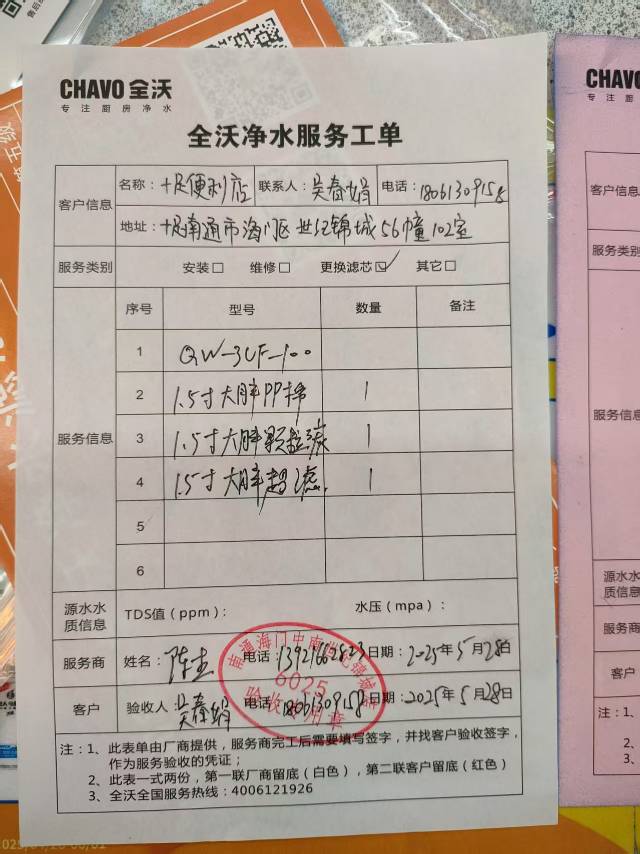 CHAVO 全沃
专注厨房净水
全沃净水服务工单
客户信息
名称：十足便利店 联系人：吴春娟 电话：18061309158
地址：十足南通市海门区世纪锦城56幢102室
服务类别 安装□ 维修□ 更换滤芯☑ 其它□
服务信息
序号 型号 数量 备注
1 QW-3UF-100
2 1.5寸大胖PP棉 1
3 1.5寸大胖颗粒炭 1
4 1.5寸大胖超滤 1
5
6
源水水质信息 TDS值（ppm）： 水压（mpa）：
服务商 姓名： 电话：13921662823 日期：2025年5月28日
客户 验收人：吴春娟 电话：18061309158 日期：2025年5月28日
6025
验收专用章
注：1、此表单由厂商提供，服务商完工后需要填写签字，并找客户验收签字，
作为服务验收的凭证；
2、此表一式两份，第一联厂商留底（白色），第二联客户留底（红色）
3、全沃全国服务热线：4006121926
CHAV
专注
客户信息
服务类别
服务信息
源水水
质信息
服务商
客户
注：1、
2、
3、